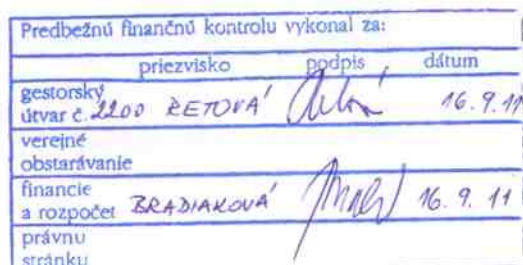 Predbežnú finančnú kontrolu vykonal za:
priezvisko podpis dátum
gestorský
útvar č. 2200 RETOVÁ 16.9.11
verejné
obstarávanie
financie
a rozpočet BRADIAKOVÁ 16. 9. 11
právnu
stránku